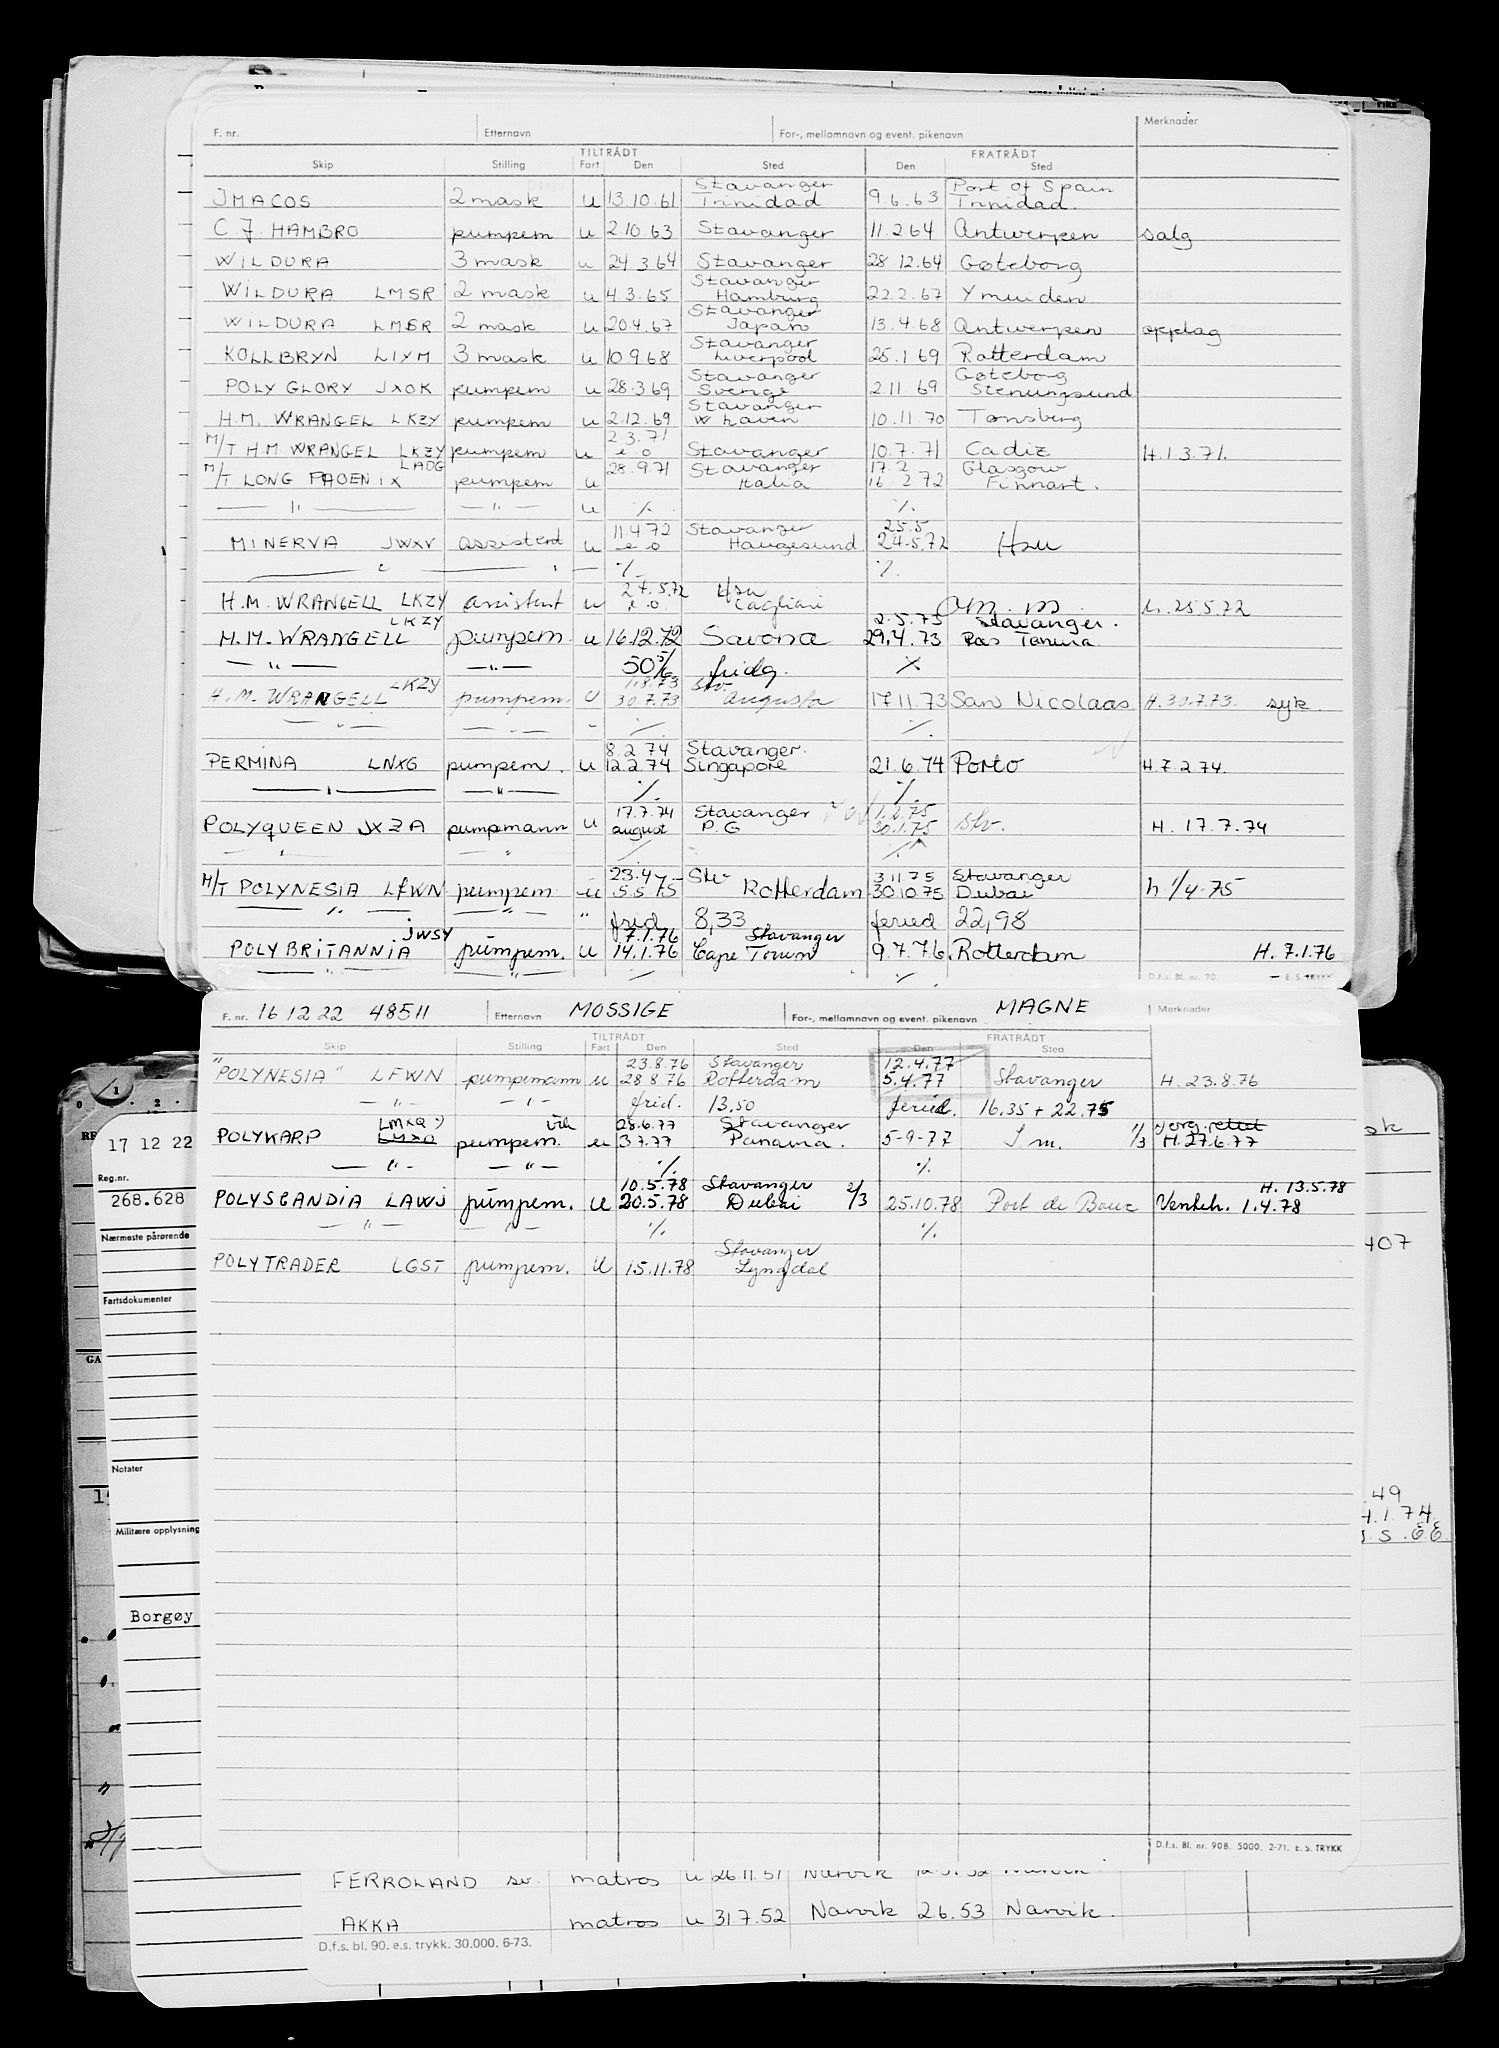 F. nr. Etternavn For-, mellomnavn og event. pikenavn Merknader
TILTRÅDT FRATRÅDT
Skip Stilling Fart Den Sted Den Sted
Stavanger Port of Spain
JMACOS 2 mask u 13.10.61 Trinidad 9.6.63 Trinidad.
C J. HAMBRO pumpem u 2.10.63 Stavanger 11.2.64 Antwerpen salg
WILDURA 3 mask u 24.3.64 Stavanger 28.12.64 Gøteborg
Stavanger
WILDURA LMSR 2 mask u 4.3.65 Hamburg 22.2.67 Ymuiden
Stavanger
WILDURA LMSR 2 mask u 20.4.67 Japan 13.4.68 Antwerpen opplag
Stavanger
KOLLBRYN LIYM 3 mask u 10.9.68 Liverpool 25.1.69 Rotterdam
Stavanger Gøteborg
POLY GLORY JXOK pumpem u 28.3.69 Sverige 2.11.69 Stenungsund
Stavanger
H.M. WRANGEL LKZY pumpem u 2.12.69 W haven 10.11.70 Tønsberg
2.3.71
M/T H.M. WRANGEL LKZY pumpem u e o Stavanger 10.7.71 Cadiz H.1.3.71.
LADG 28.9.71 Stavanger 17.2 Glasgow
M/T LONG PHOENIX pumpem u Italia 16.2.72 Finnart.
— " — — " — u ·/. ·/.
11.4.72 Stavanger 25.5
MINERVA JWXV assistent u e o Haugesund 24.5.72 Hsu
— " — " — ·/. ·/.
27.5.72 Hsu
H.M. WRANGELL LKZY assistent u e o Cagliari am. m. h. 25.5.72
LKZY 2.5.73 Stavanger.
H.M. WRANGELL pumpem. u 16.12.72 Savona 29.4.73 Ras Tanura
— " — — " — fridg. ·/.
LKZY 1.8.73 Stv.
H.M. WRANGELL pumpem. U 30.7.73 Augusta 17.11.73 San Nicolaas H. 30.7.73. syk.
— " — — " — ·/. ·/.
8.2.74 Stavanger.
PERMINA LNXG pumpem. u 12.2.74 Singapore 21.6.74 Porto H.7.2.74.
— " — — " — ·/. ·/.
17.7.74 Stavanger 1.2.75
POLYQUEEN JXZA pumpemann u august P.G 30.1.75 Stv. H. 17.7.74
" " ·/. ·/.
23.4 — Stv 3.11.75 Stavanger
M/T POLYNESIA LFWN pumpem u 5.5.75 Rotterdam 30.10.75 Dubai h. 1/4-75
— " — — " — " frid 8,33 feried 22,98
JWSY 7.1.76 Stavanger
POLYBRITANNIA pumpem. u 14.1.76 Cape Town 9.7.76 Rotterdam H. 7.1.76
— " — — " — ·/. ·/. D.f.s. Bl. nr. 90. — E. S. TRYKK
F. nr. 16 12 22 48511 Etternavn MOSSIGE For-, mellomnavn og event. pikenavn MAGNE Merknader
TILTRÅDT FRATRÅDT
Skip Stilling Fart Den Sted Den Sted
23.8.76 Stavanger 12.4.77
"POLYNESIA" LFWN pumpemann u 28.8.76 Rotterdam 5.4.77 Stavanger H. 23.8.76
— " — — " — frid. 13,50 feried. 16.35 + 22.75
LMXQ vik 28.6.77 Stavanger
POLYKARP LMXO pumpem. u 3.7.77 Panama. 5-9-77 S.m. 1/3 H. 27.6.77
— " — — " — ·/. ·/.
10.5.78 Stavanger H. 13.5.78
POLYSCANDIA LAWJ pumpem. u 20.5.78 Dubai 2/3 25.10.78 Port de Bouc Ventetr. 1.4.78
— " — — " — ·/. ·/.
Stavanger
POLYTRADER LGST pumpem. U 15.11.78 Lyngdal
D.f.s. Bl. nr. 908. 5000. 2-71. E. S. TRYKK
17 12 22
Reg.nr.
268.628
Nærmeste pårørende
Fartsdokumenter
Notater
Militære opplysning
Borgøy
407
49
4.1.74.
FERROLAND sv. matros u 26.11.51 Narvik 12.5.52 Narvik.
AKKA matros u 31.7.52 Narvik 2.6.53 Narvik.
D.f.s. bl. 90. e.s. trykk. 30.000. 6-73.